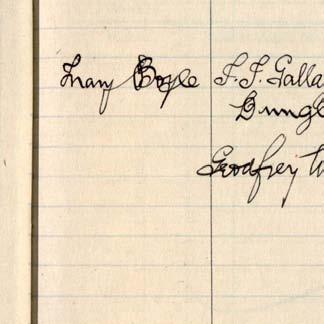 Mary Boyle F. F. Galla
Dungl
Godfrey